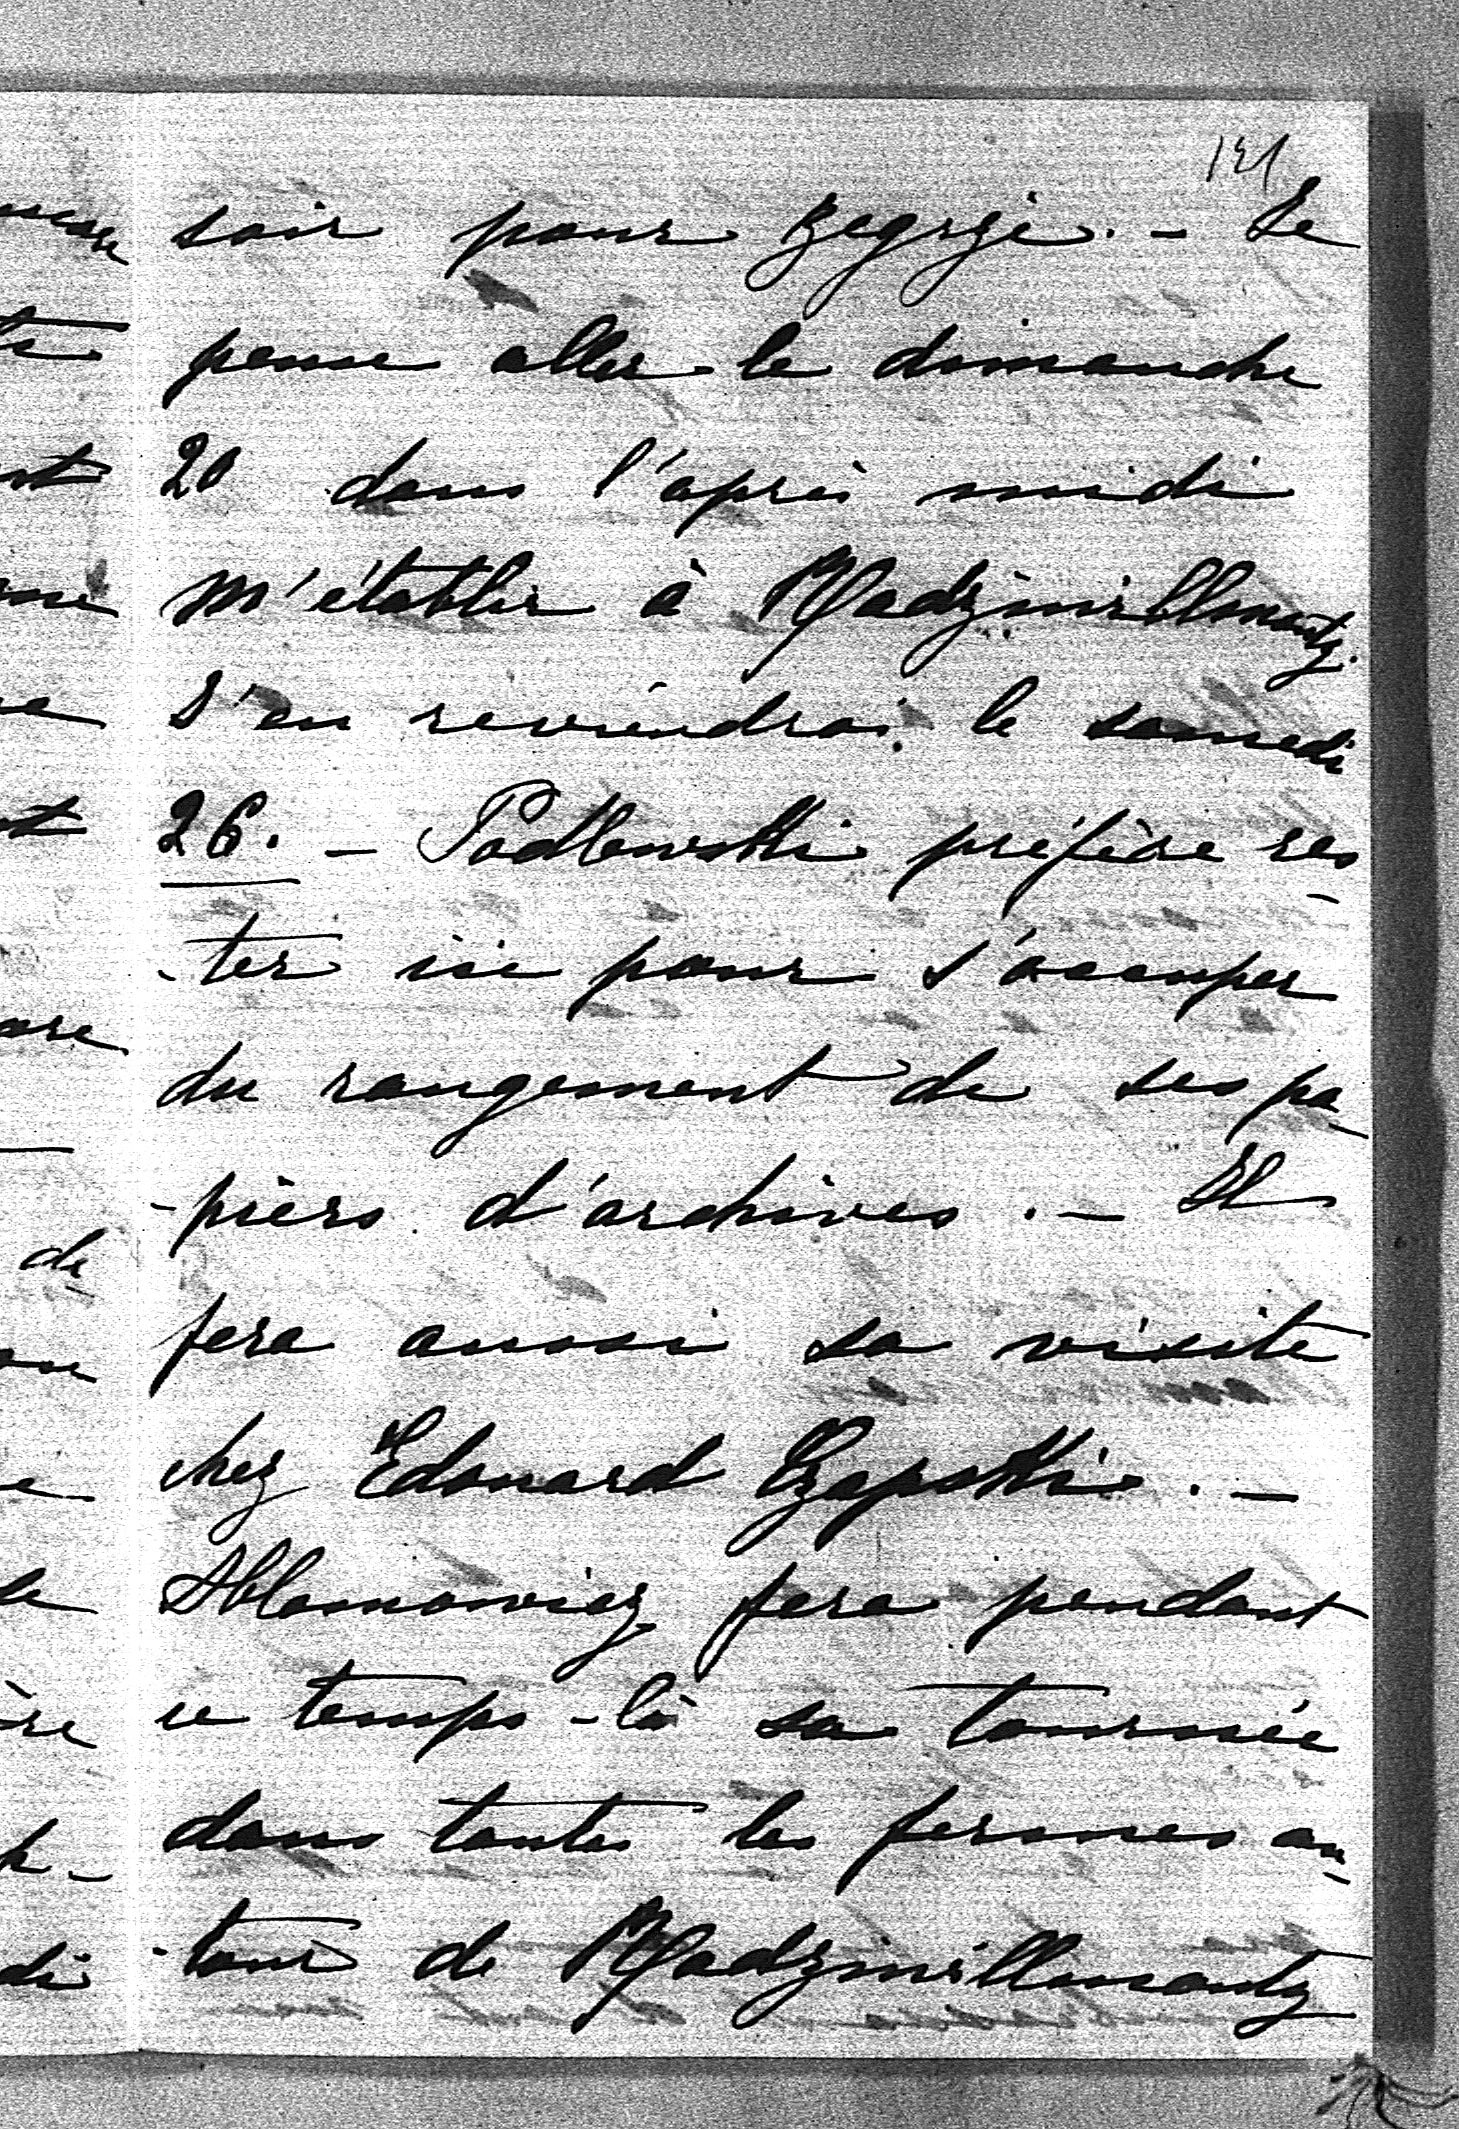 131
soir pour Zegrze. — Je
pense aller le dimanche
20 dans l'après midi
m'établir à Radziwillmonty.
J'en reviendrai le samedi
26. — Podlewski préfère res-
-ter ici pour s'occuper
du rangement de ses pa-
-piers d'archives. — Il
fera aussi sa visite
chez Edouard Czapski. —
Ablamowicz fera pendant
ce temps-là sa tournée
dans toutes les fermes au-
-tour de Radziwillmonty